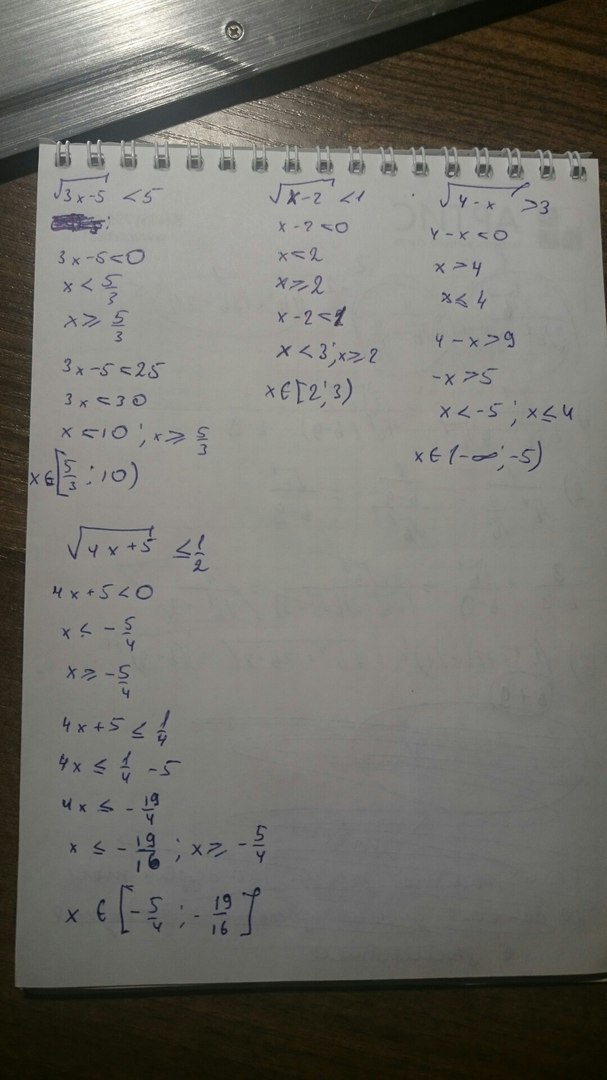 √3x-5 < 5
3x-5<0
x < 5/3
x ≥ 5/3
3x-5<25
3x<30
x<10 ; x ≥ 5/3
x∈[5/3 ; 10)
√x-2 < 1
x-2<0
x<2
x≥2
x-2<1
x<3; x≥2
x∈[2; 3)
√4-x > 3
4-x<0
x>4
x≤4
4-x>9
-x>5
x<-5 ; x≤4
x∈(-∞; -5)
√4x+5 ≤ 1/2
4x+5<0
x < -5/4
x ≥ -5/4
4x+5 ≤ 1/4
4x ≤ 1/4 -5
4x ≤ -19/4
x ≤ -19/16 ; x ≥ -5/4
x ∈ [-5/4 ; -19/16]